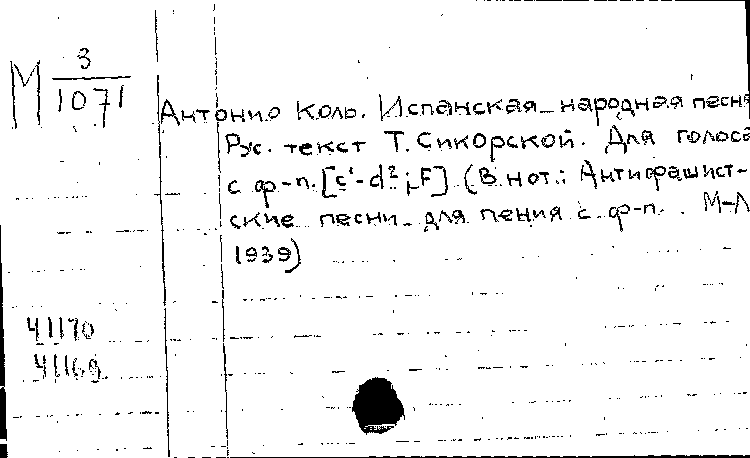 М 3/1071
Антонио Коль. Испанская народная песня
Рус. текст Т. Сикорской. Для голоса
с ф-п. [c¹-d²; F] (В нот.: Антифашист-
ские песни для пения с ф-п. М-Л
1939)
41170
41169